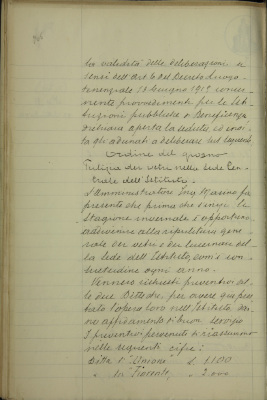 la validità delle deliberazioni ai
sensi dell'art. 6 del Decreto Luogo-
tenenziale 18 Giugno 1915
provvedimenti per le Isti-
tuzioni pubbliche di Beneficenza
dichiara aperta la seduta ed invi-
ta gli adunati a deliberare sul seguente
Ordine del giorno
Pulizia dei vetri nella Sede Cen-
trale dell'Istituto.
L'Amministratore Ing. Masino fa
presente che prima che venga la
stagione invernale è opportuno
addivenire alla ripulitura gene-
rale dei vetri e dei lucernari del-
la Sede dell'Istituto, com'è con-
suetudine ogni anno.
Vennero richiesti preventivi al-
le due Ditte che, per avere già pre-
stato l'opera loro nell'Istituto, dan-
no affidamento di buon servizio
I preventivi pervenuti si riassumono
nelle seguenti cifre:
Ditta L'Unione L.
" La